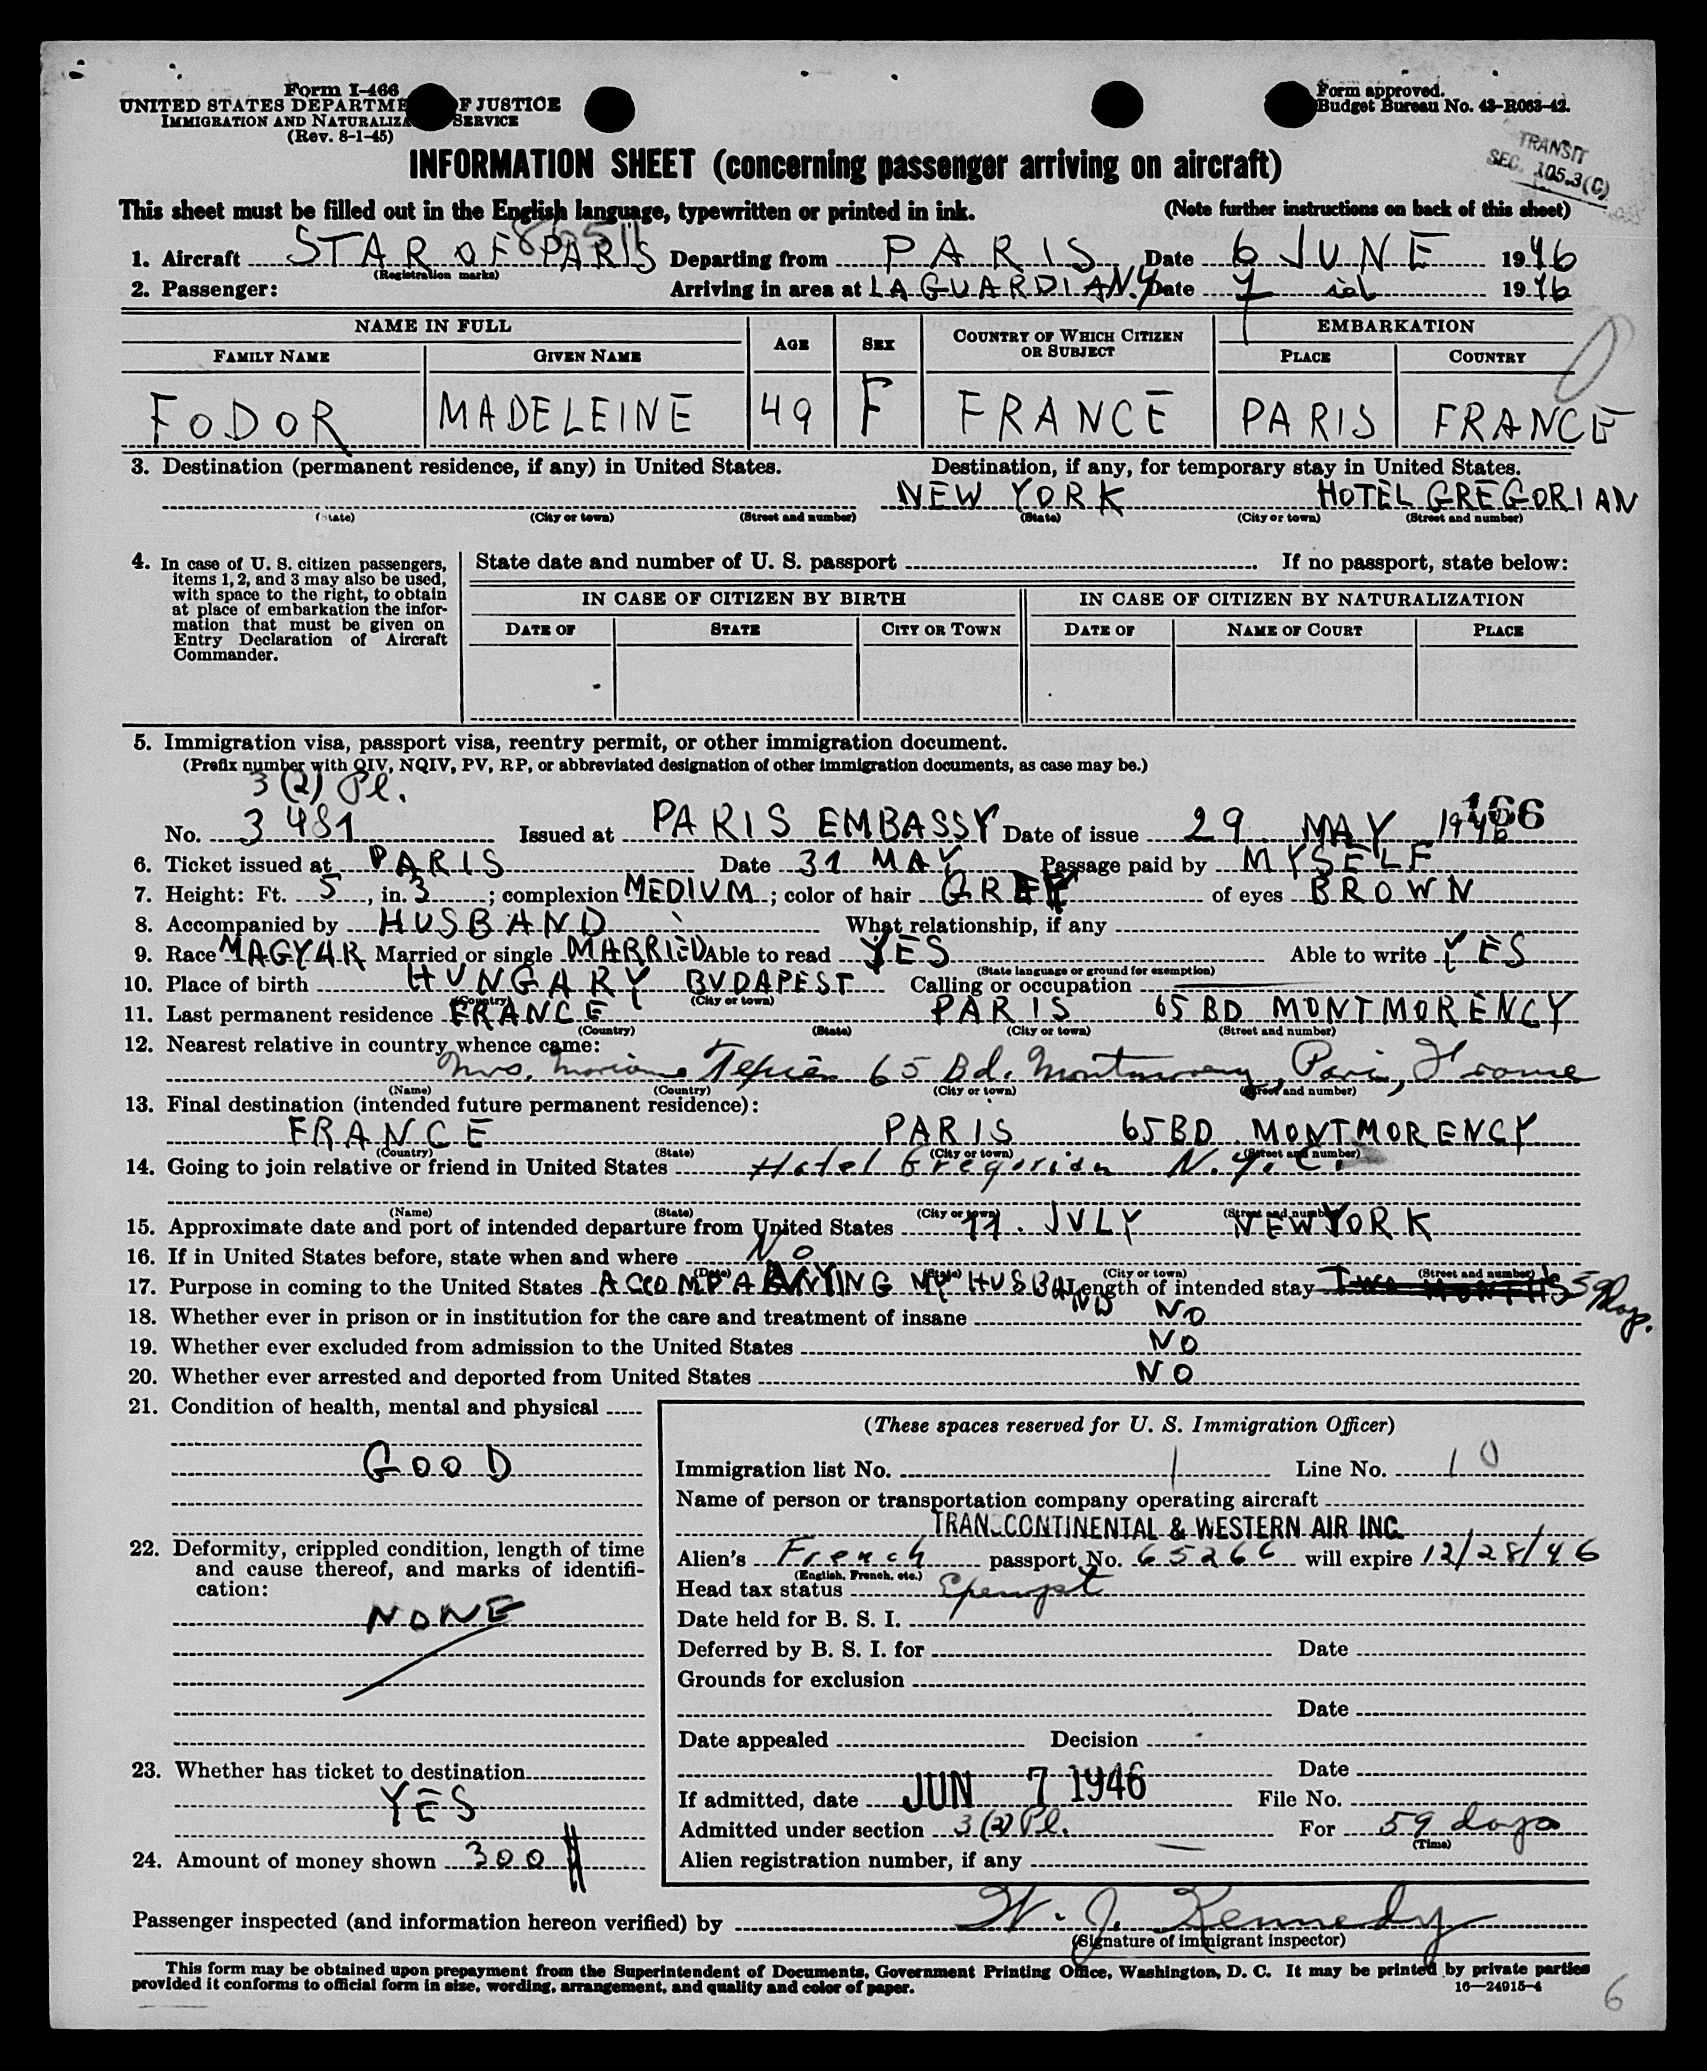 Form I-466
UNITED STATES DEPARTME F JUSTICE
IMMIGRATION AND NATURALIZA SERVICE
(Rev. 8-1-45)
Form approved.
Budget Bureau No. 43-R063-42.
TRANSIT
SEC. 105.3(C)
INFORMATION SHEET (concerning passenger arriving on aircraft)
This sheet must be filled out in the English language, typewritten or printed in ink. (Note further instructions on back of this sheet)
1. Aircraft STAR OF PARIS Departing from PARIS Date 6 JUNE 1946
(Registration marks)
2. Passenger: Arriving in area at LA GUARDIA N.Y Date 7 1946
NAME IN FULL AGE SEX COUNTRY OF WHICH CITIZEN OR SUBJECT EMBARKATION
FAMILY NAME GIVEN NAME PLACE COUNTRY
FODOR MADELEINE 49 F FRANCE PARIS FRANCE
3. Destination (permanent residence, if any) in United States. Destination, if any, for temporary stay in United States.
NEW YORK HOTEL GREGORIAN
(State) (City or town) (Street and number) (State) (City or town) (Street and number)
4. In case of U. S. citizen passengers, items 1, 2, and 3 may also be used, with space to the right, to obtain at place of embarkation the information that must be given on Entry Declaration of Aircraft Commander.
State date and number of U. S. passport If no passport, state below:
IN CASE OF CITIZEN BY BIRTH IN CASE OF CITIZEN BY NATURALIZATION
DATE OF STATE CITY OR TOWN DATE OF NAME OF COURT PLACE
5. Immigration visa, passport visa, reentry permit, or other immigration document.
(Prefix number with QIV, NQIV, PV, RP, or abbreviated designation of other immigration documents, as case may be.)
3 (2) Pl.
166
No. 3481 Issued at PARIS EMBASSY Date of issue 29 MAY 1946
6. Ticket issued at PARIS Date 31 MAY Passage paid by MYSELF
7. Height: Ft. 5, in. 3; complexion MEDIUM; color of hair GREY of eyes BROWN
8. Accompanied by HUSBAND What relationship, if any
9. Race MAGYAR Married or single MARRIED Able to read YES Able to write YES
(State language or ground for exemption)
10. Place of birth HUNGARY BUDAPEST Calling or occupation
(Country) (City or town)
11. Last permanent residence FRANCE PARIS 65 BD MONTMORENCY
(Country) (State) (City or town) (Street and number)
12. Nearest relative in country whence came:
Mrs. 65 Bd. Montmorency, Paris, France
(Name) (Country) (City or town) (Street and number)
13. Final destination (intended future permanent residence):
FRANCE PARIS 65 BD. MONTMORENCY
(Country) (State) (City or town) (Street and number)
14. Going to join relative or friend in United States Hotel Gregorian N.Y.C.
(Name) (State) (City or town) (Street and number)
15. Approximate date and port of intended departure from United States 11. JULY NEW YORK
16. If in United States before, state when and where No
(Date) (State) (City or town) (Street and number)
17. Purpose in coming to the United States ACCOMPANYING MY HUSBAND Length of intended stay TWO MONTHS 59 Days.
18. Whether ever in prison or in institution for the care and treatment of insane NO
19. Whether ever excluded from admission to the United States NO
20. Whether ever arrested and deported from United States NO
21. Condition of health, mental and physical
GOOD
22. Deformity, crippled condition, length of time and cause thereof, and marks of identification:
NONE
23. Whether has ticket to destination
YES
24. Amount of money shown 300 $
(These spaces reserved for U. S. Immigration Officer)
Immigration list No. 1 Line No. 10
Name of person or transportation company operating aircraft
TRANSCONTINENTAL & WESTERN AIR INC.
Alien's French passport No. 65266 will expire 12/28/46
(English, French, etc.)
Head tax status Exempt
Date held for B. S. I.
Deferred by B. S. I. for Date
Grounds for exclusion
Date
Date appealed Decision
Date
If admitted, date JUN 7 1946 File No.
Admitted under section 3(2) Pl. For 59 days
(Time)
Alien registration number, if any
Passenger inspected (and information hereon verified) by W. J. Kennedy
(Signature of immigrant inspector)
This form may be obtained upon prepayment from the Superintendent of Documents, Government Printing Office, Washington, D. C. It may be printed by private parties
provided it conforms to official form in size, wording, arrangement, and quality and color of paper. 16—24915-4
6